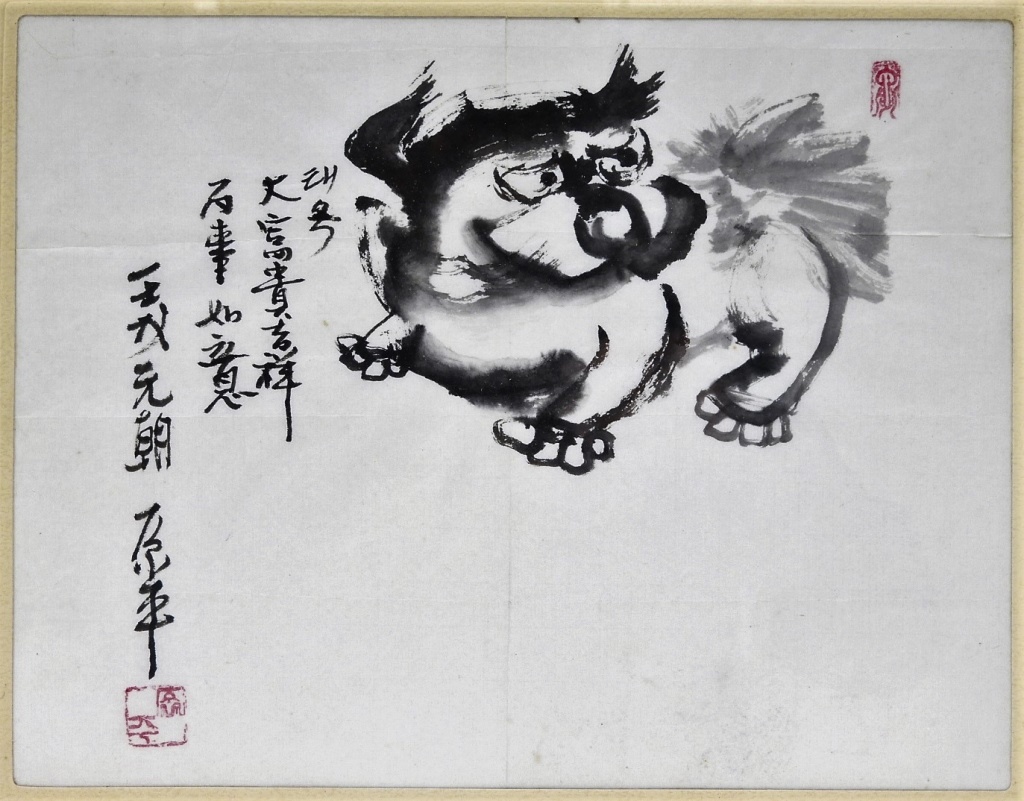 大富貴吉祥
万事如意
壬戌元朝 原平